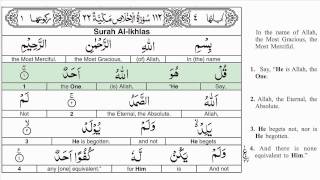 اٰیاتها ٤ ١١٢ سُوْرَةُ الْاِخْلَاصِ مَكِّيَّةٌ ٢٢ رکوعها ١
Surah Al-Ikhlas
بِسْمِ اللّٰهِ الرَّحْمٰنِ الرَّحِيْمِ
the Most Merciful. the Most Gracious, (of) Allah, In (the) name
قُلْ هُوَ اللّٰهُ اَحَدٌ ۝١
1 the One (is) Allah, "He Say,
اَللّٰهُ الصَّمَدُ ۝٢ لَمْ يَلِدْ
Not 2 the Eternal, the Absolute. Allah,
وَلَمْ يُوْلَدْ ۝٣
3 He is begotten. and not He begets
وَلَمْ يَكُنْ لَّهٗ كُفُوًا اَحَدٌ ۝٤
4 any [one] equivalent." for Him is And not
In the name of Allah, the Most Gracious, the Most Merciful.
1. Say, "He is Allah, the One.
2. Allah, the Eternal, the Absolute.
3. He begets not, nor is He begotten,
4. And there is none equivalent to Him."